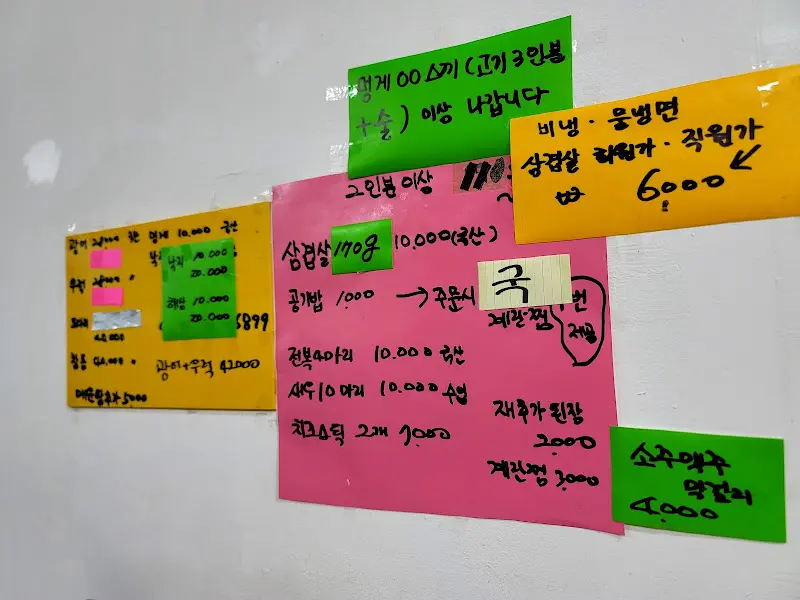 멍게 00 스끼 (고기 3인분
+술) 이상 나갑니다
비냉·물냉면
삼겹살 직원가
6000
2인분 이상
삼겹살 170g 10.000(국산)
공기밥 1000 → 주문시 국
계란찜 제공
전복 4마리 10.000 국산
새우 10마리 10.000 수입
치즈스틱 2개 1000
재추가 된장
2000
계란찜 3000
광어 멍게 10.000 국산
낙지 10.000
20.000
해삼 10.000
20.000
6899
광어+우럭 42000
매운탕추가 5000
소주맥주
막걸리
4.000